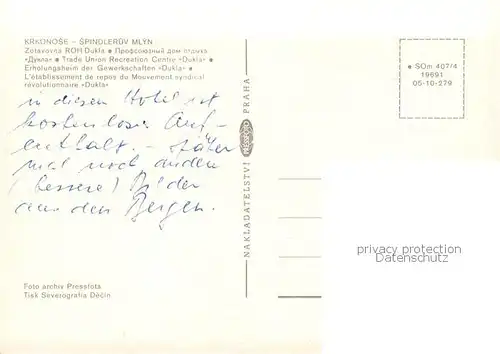 KRKONOŠE – ŠPINDLERŮV MLÝN
Zotavovna ROH Dukla ● Профсоюзный дом отдыха
«Дукла» ● Trade Union Recreation Centre »Dukla« ●
Erholungsheim der Gewerkschaften »Dukla« ●
L'établissement de repos du Mouvement syndical
révolutionnaire »Dukla«
in diesem Hotel ist
kostenloser Auf-
enthalt. – später
mal noch andere
(bessere) Bilder
aus den Bergen.
Foto archiv Pressfota
Tisk Severografia Děčín
NAKLADATELSTVÍ PRESSFOTO PRAHA
● SOm 407/4
19691
05-10-279
privacy protection
AnsichtskartenVersand.com